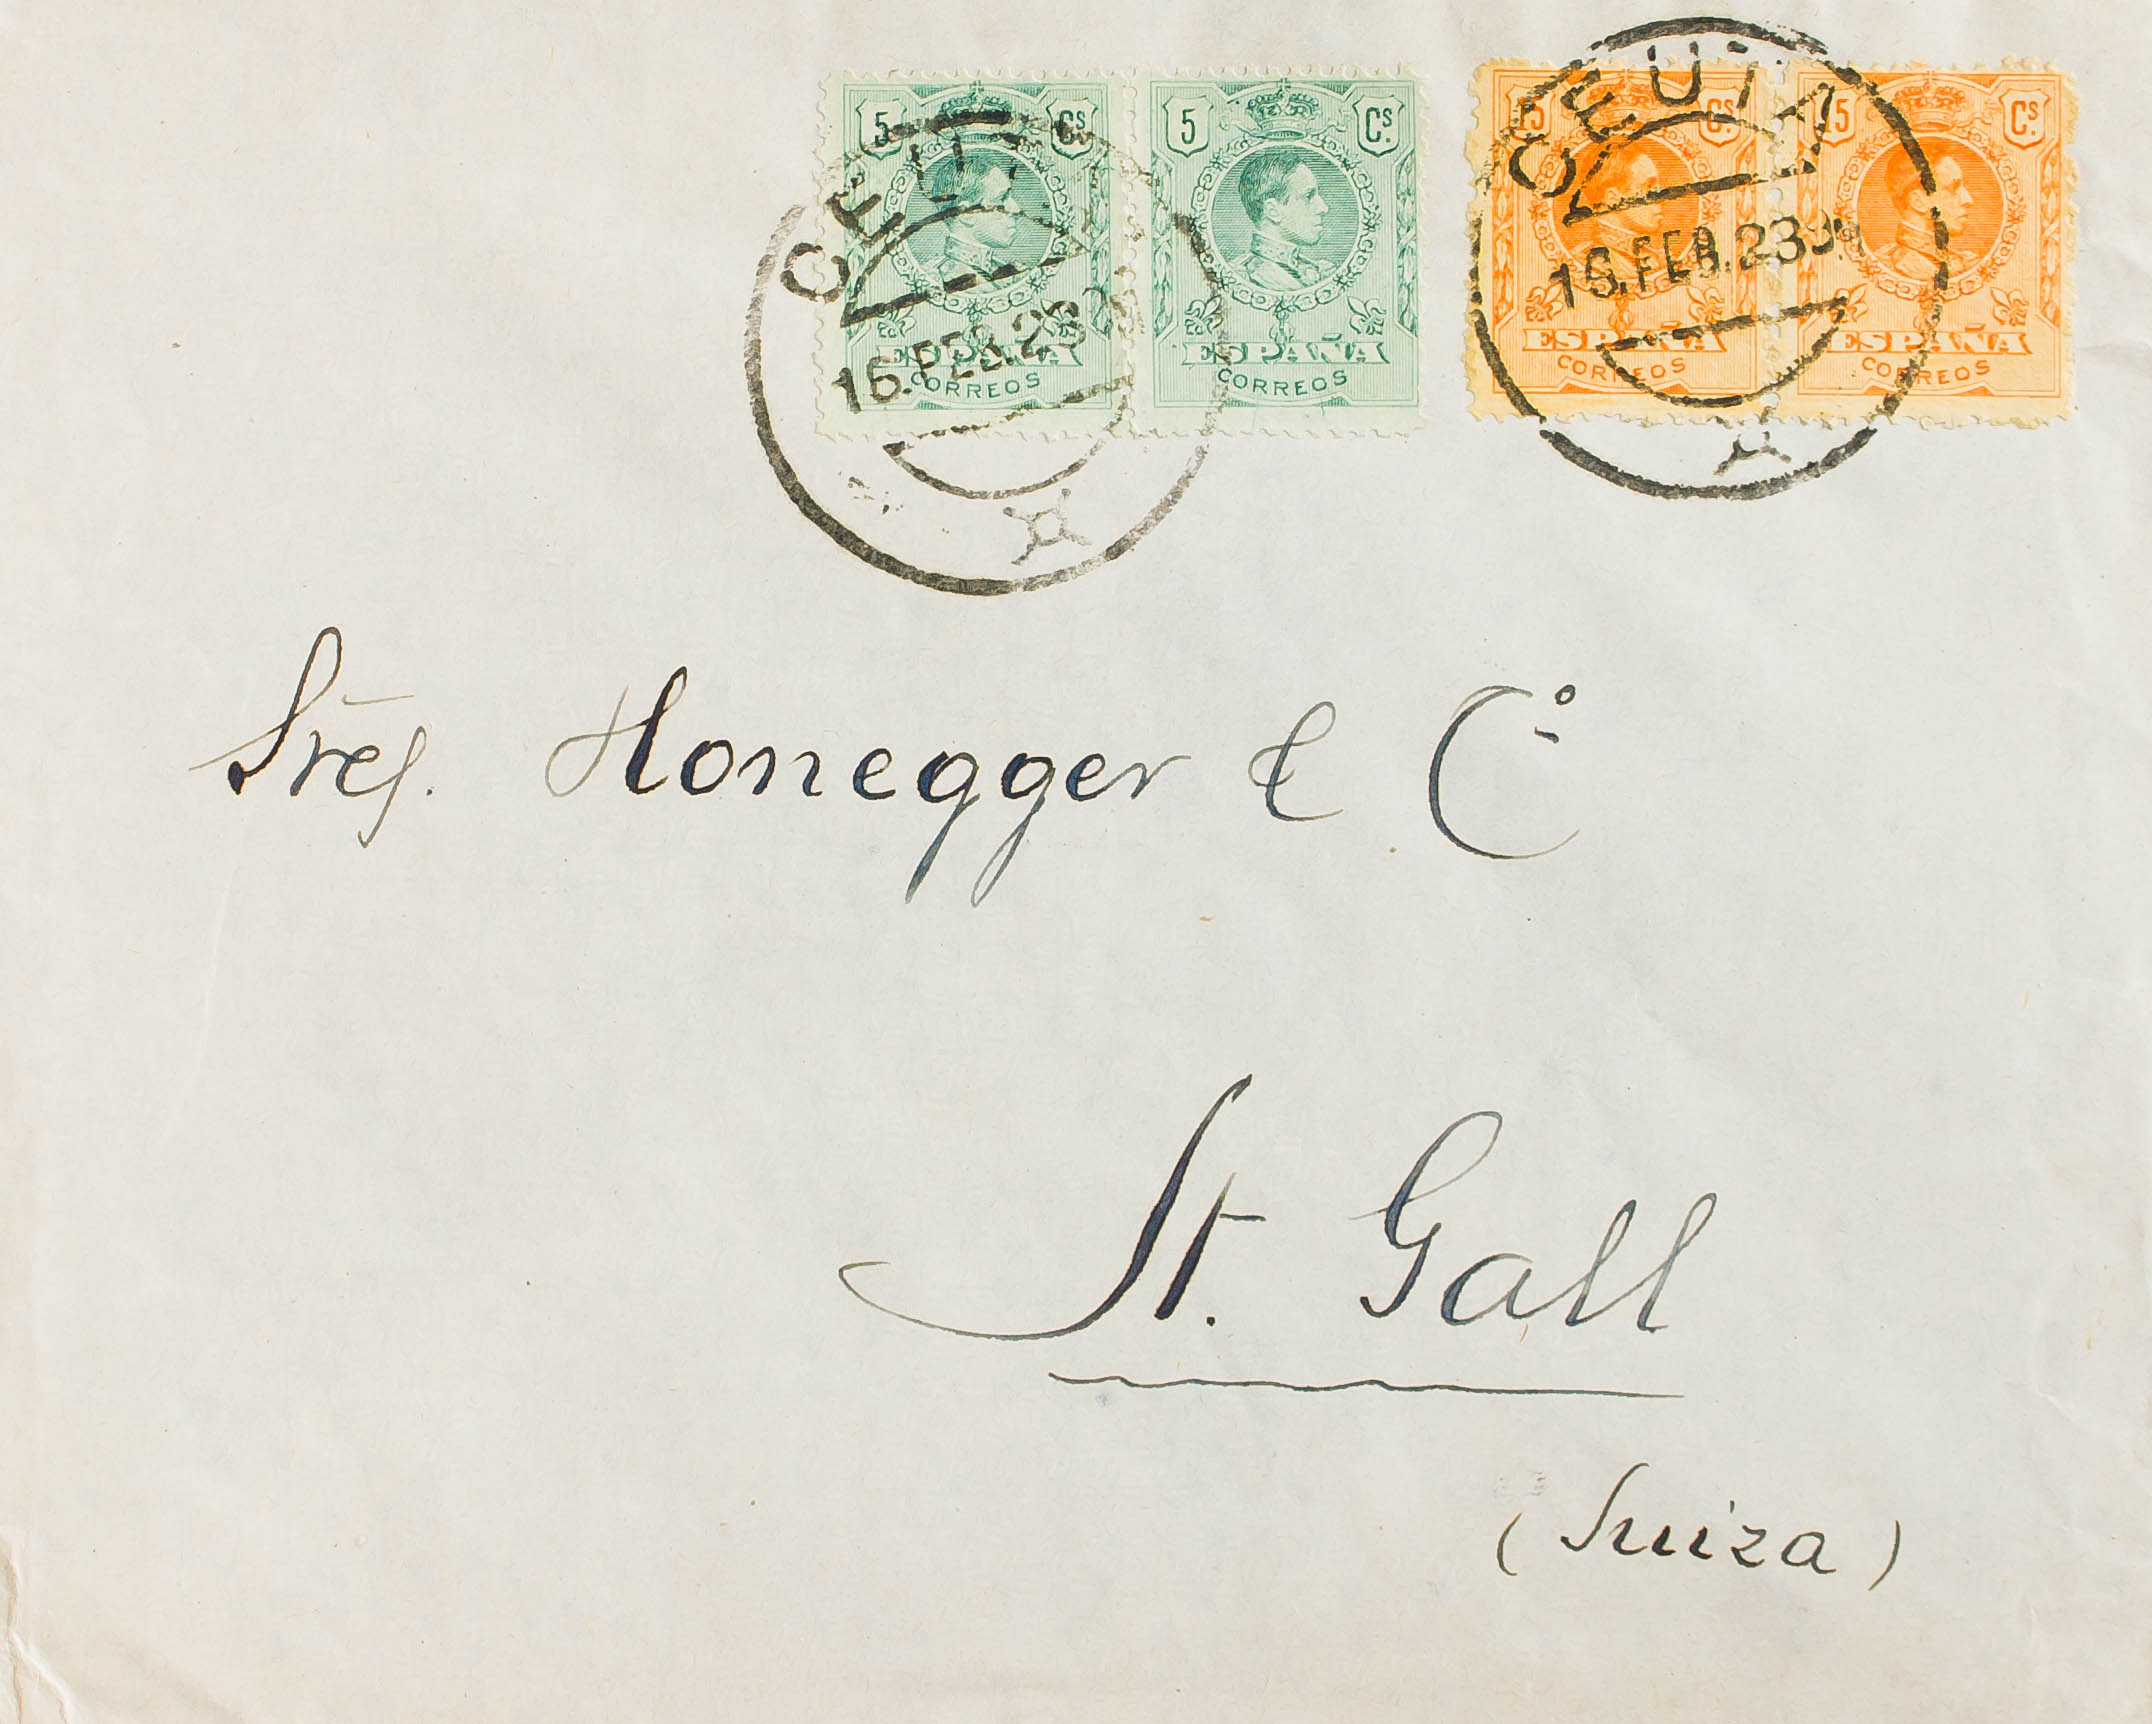 5 Cs
ESPAÑA
CORREOS
5 Cs.
ESPAÑA
CORREOS
15 Cs.
ESPAÑA
CORREOS
15 Cs.
ESPAÑA
CORREOS
CEUTA
16.FEB.23
CEUTA
16.FEB.23
Sres. Honegger & Cº
St. Gall
(Suiza)